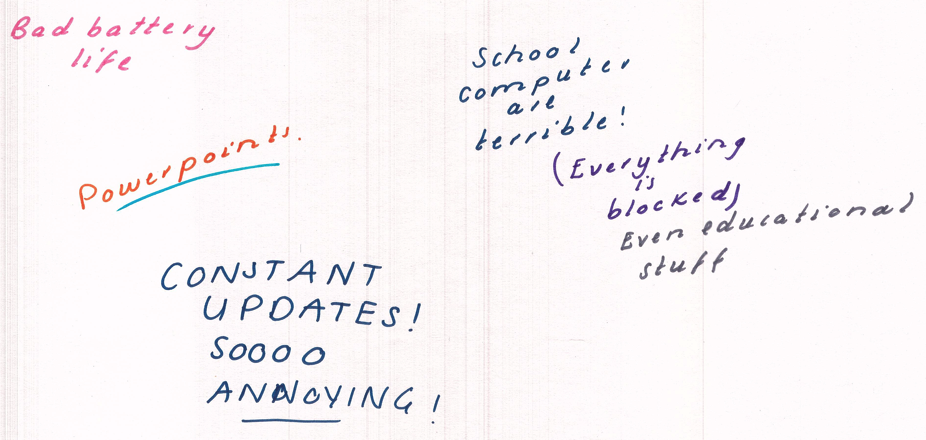 Bad battery
life
School
computer
are
terrible!
(Everything
is
blocked)
Even educational
stuff
Powerpoints.
CONSTANT
UPDATES!
SOOOO
ANNOYING!